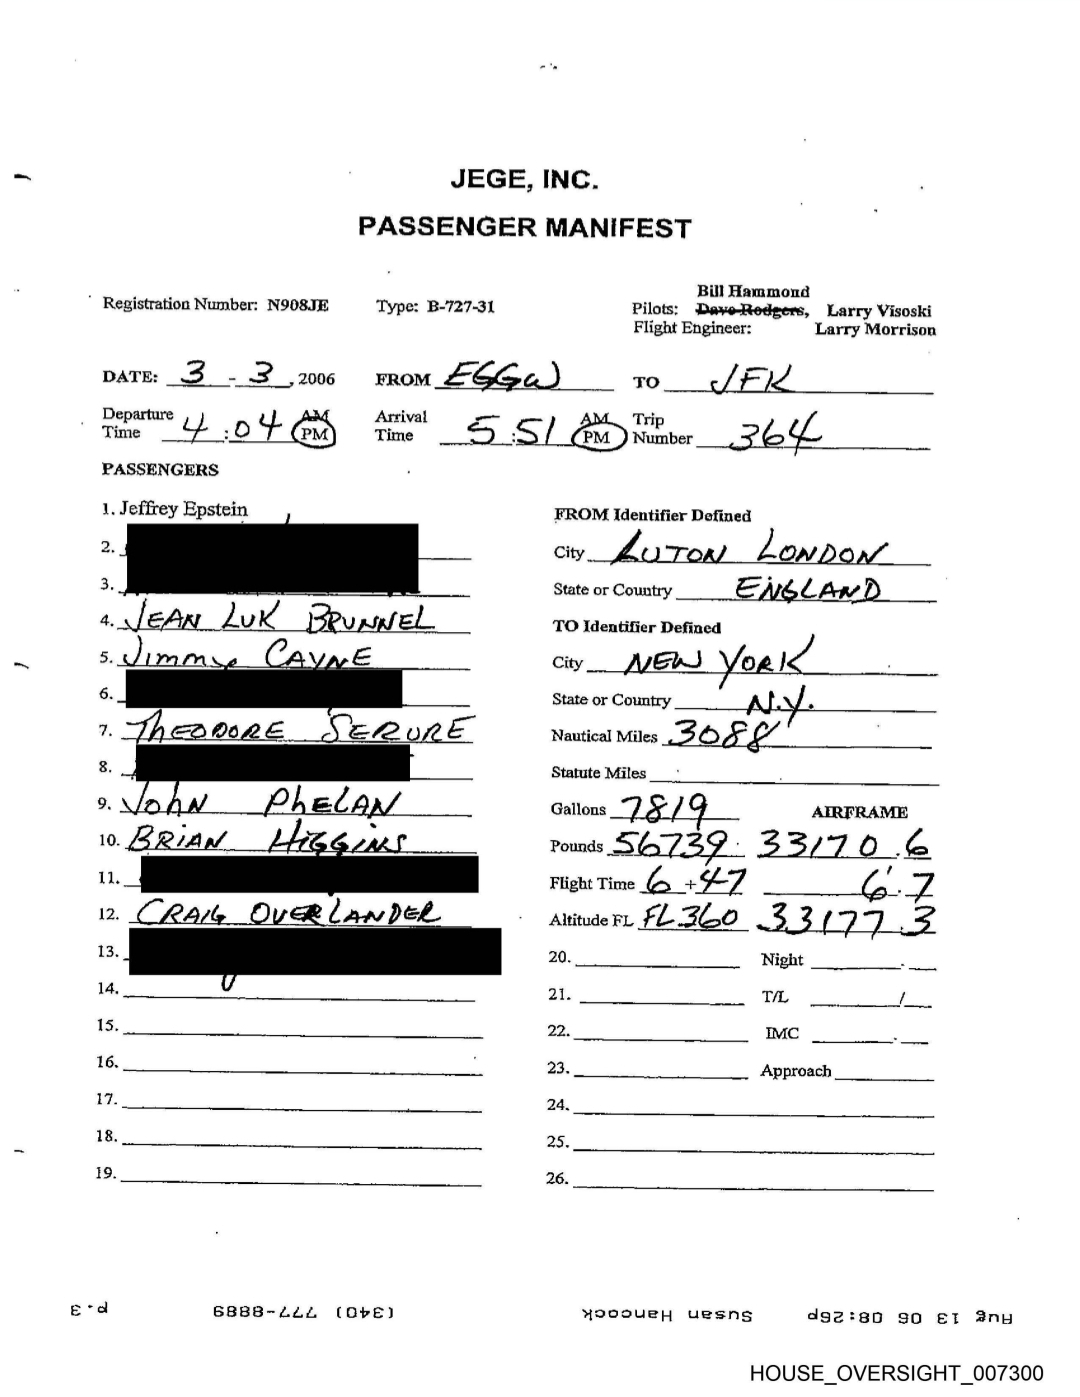 JEGE, INC.
PASSENGER MANIFEST
Registration Number: N908JE Type: B-727-31 Pilots: Bill Hammond Dave Rodgers, Larry Visoski
Flight Engineer: Larry Morrison
DATE: 3 - 3, 2006 FROM EGGW TO JFK
Departure Time 4:04 AM PM Arrival Time 5:51 AM PM Trip Number 364
PASSENGERS
1. Jeffrey Epstein
2.
3.
4. JEAN LUK BRUNNEL
5. Jimmy CAYNE
6.
7. THEODORE SERURE
8.
9. JOHN PHELAN
10. BRIAN HIGGINS
11.
12. CRAIG OVERLANDER
13.
14.
15.
16.
17.
18.
19.
FROM Identifier Defined
City LUTON LONDON
State or Country ENGLAND
TO Identifier Defined
City NEW YORK
State or Country N.Y.
Nautical Miles 3088
Statute Miles
Gallons 7819 AIRFRAME
Pounds 56739 33170.6
Flight Time 6 + 47 6.7
Altitude FL FL360 33177.3
20. Night
21. T/L /
22. IMC
23. Approach
24.
25.
26.
Aug 13 06 08:26p Susan Hancock (340) 777-8889 p.3
HOUSE_OVERSIGHT_007300